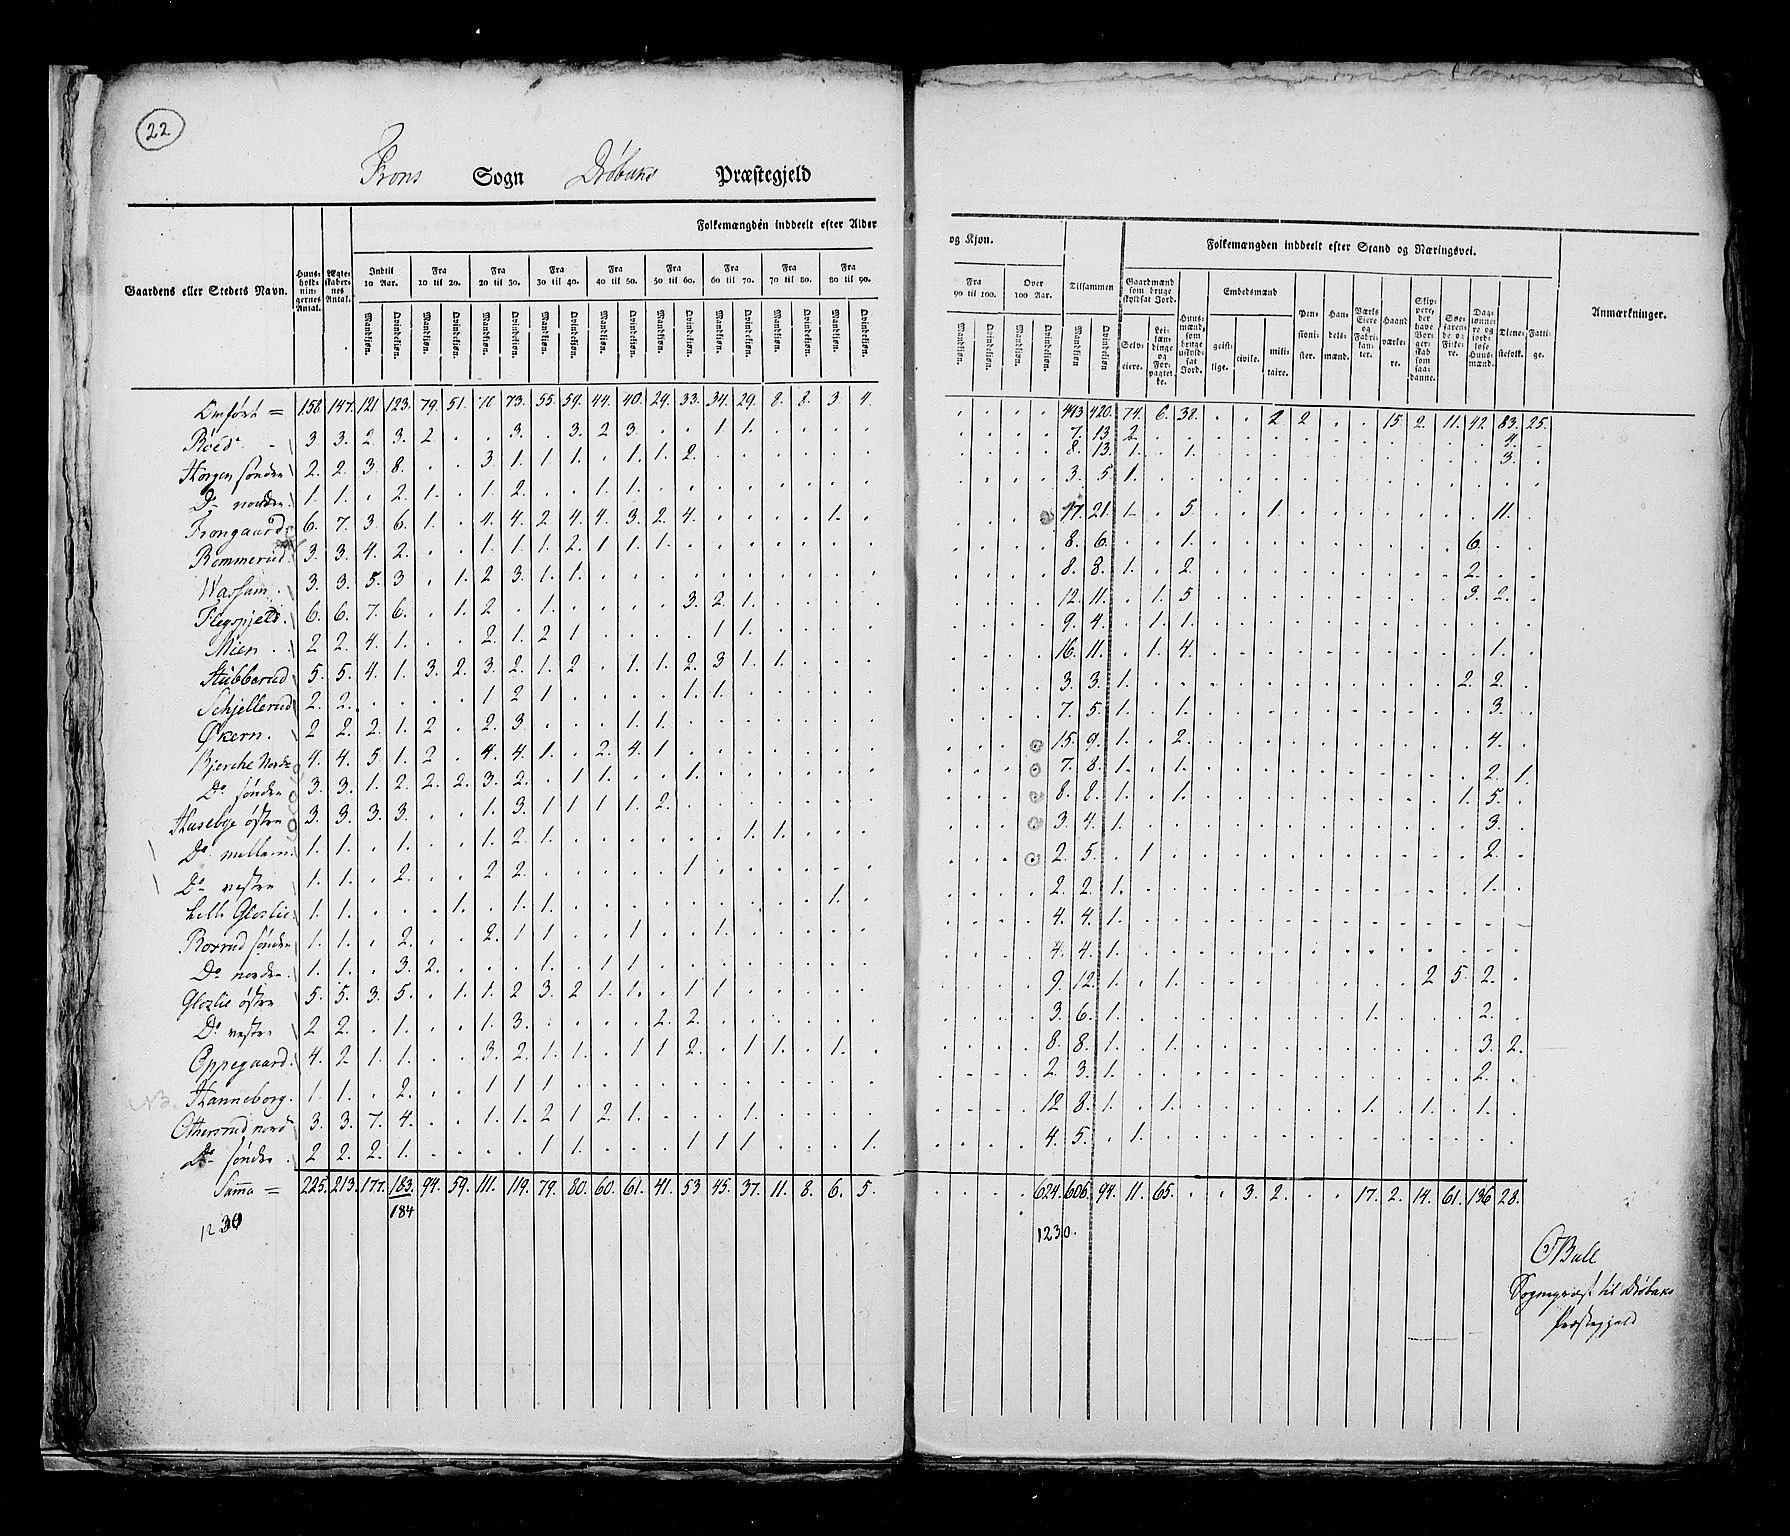 22
Frons Sogn Drøbaks Præstegjeld
Folkemængden inddeelt efter Alder og Kjøn.
Folkemængden inddeelt efter Stand og Næringsvei.
Gaardens eller Stedets Navn. Huus-holdnin-gernes Antal. Ægte-skaber-nes Antal. Indtil 10 Aar. Fra 10 til 20. Fra 20 til 30. Fra 30 til 40. Fra 40 til 50. Fra 50 til 60. Fra 60 til 70. Fra 70 til 80. Fra 80 til 90.
Fra 90 til 100. Over 100 Aar. Tilsammen Gaardmænd som bruge skyldsat Jord. Huusmænd, som bruge uskyldsat Jord. Embedsmænd Pensionister. Handelsmænd. Værks Eiere og Fabrikanter. Haandværkere. Skippere, der have Borgerskab som saadanne. Søefarende og Fiskere. Daglønnere og jordløse Huusmænd. Tienestefolk. Fattige. Anmærkninger.
Mandkiøn. Qvindekiøn. Selveiere. Leilændinge og Forpagtere. geistlige. civile. militaire.
Omført = 158. 147. 121. 123. 79. 51. 70. 73. 55. 59. 44. 40. 29. 33. 34. 29. 8. 8. 3. 4. 443 420. 74. 6. 38. . . 2 2. . . 15. 2. 11. 42. 83. 25.
Røed 3. 3. 2. 3. 2. . . 3. . 3. 2 3. . . 1 1. 7. 13. 2. 4.
Horgen søndre 2. 2. 3. 8. . . 3. 1. 1. 1. . 1. 1. 2. 8. 13. 1. . 1. 3.
Do nordre 1. 1. . 2. 1. . 1. 2. . . 1. 1. 3. 5. 1.
Frongaard 6. 7. 3. 6. 1. . 4. 4. 2 4. 4. 3. 2. 4. . . . . 1. 17. 21. 1. . 5. 1. 11.
Rommerud 3. 3. 4. 2. . . 1. 1. 1. 2. 1 1. 1. 8. 6. . . 1. 6.
Wassum 3. 3. 5. 3 . 1. 2 3. 1. 1. 8. 8. 1. . 2. 2.
Flegspjeld. 6. 6. 7. 6. . 1. 2. . 1. . . . . 3. 2. 1. 12. 11. . 1. 5. 3. 2.
Mien 2. 2. 4. 1. . . 2. 1. 2 1. . . . . 1 1. 9. 4. . 1. 1.
Stubberud 5. 5. 4. 1. 3. 2. 3. 2. 1. 2 . 1. 1. 2. 3 1. 1. 16. 11. . 1. 4. 1.
Schjellerud 2. 2. . . . . 1 2 1 . . . . 1. 1. 3. 3. 1. 2. 2.
Økern. 2 2. 2. 1. 2 . 2. 3. . . . 1. 1. 7. 5. 1. . 1. 3.
Bjerche Nordr 4. 4. 5. 1. 2 . 4. 4. 1. . 2. 4. 1 15. 9. 1. . 2. 4.
Do søndre 3. 3. 1. 2. 2. 2. 3. 2. . 1 1. . . 1. 7. 8. 1. . 1. 2. 1.
Huseby østre 3. 3. 3. 3. . . 1. 3. 1 1 1 1. 2. 8. 8. 1. . 1. 1. 5.
Do mellem 1. 1. . 1. . . 1. 2. 1. . . . . . . 1. 1. 3. 4. 1. 3.
Do vestre 1. 1. . 2. . . 2 2. . . . . . 1 2. 5. . 1 2.
Lille Glorlie 1. 1. . . . 1. . 1. 1. . . . . . . . . . 1. 2. 2. 1. 1.
Borrud søndre 1. 1. . 2. . . 2. 1 1. . . 1 . . 1. 4. 4. 1.
Do nordre. 1. 1. . 3. 2. . . . 1. . 1 1. 4. 4. 1.
Glorlie østre 5. 5. 3. 5. . 1. 1. 2 3. 2 1. 1. . 1 1. 9. 12. 1. . 1. 2 5. 2.
Do vestre 2 2. . 1. . . 1. 3. . . . . 2. 2. 3. 6. 1. 1. 2.
Oppegaard. 4. 2 1. 1. . . 3. 2. 1. 1. . 1 1 2. . 1. 1. . 1. 8. 8. 1. . 1. 3. 2.
Hanneborg. 1. 1. . 2. . . 1 1 1 2. 3. 1. 2.
Ottersrud nord 3. 3. 7. 4. . . 1. 1. 2 1 2. 1. . . . 1. 12 8. 1. . 1. 1. 1. 1.
Do søndre 2 2. 2. 1. . . . . 1 1. . . . 1 1 1. . . . 1. 4. 5. . 1.
Summa = 225. 213. 177. 183. 94. 59. 111. 119. 79. 80. 60. 61. 41. 53. 45. 37. 11. 8. 6. 5. 624. 606. 94. 11. 65. . . 3. 2. . . 17. 2. 14. 61. 136 28.
184
1230
1230.
Bull
Sognepræst til Drøbaks
Præstegjeld